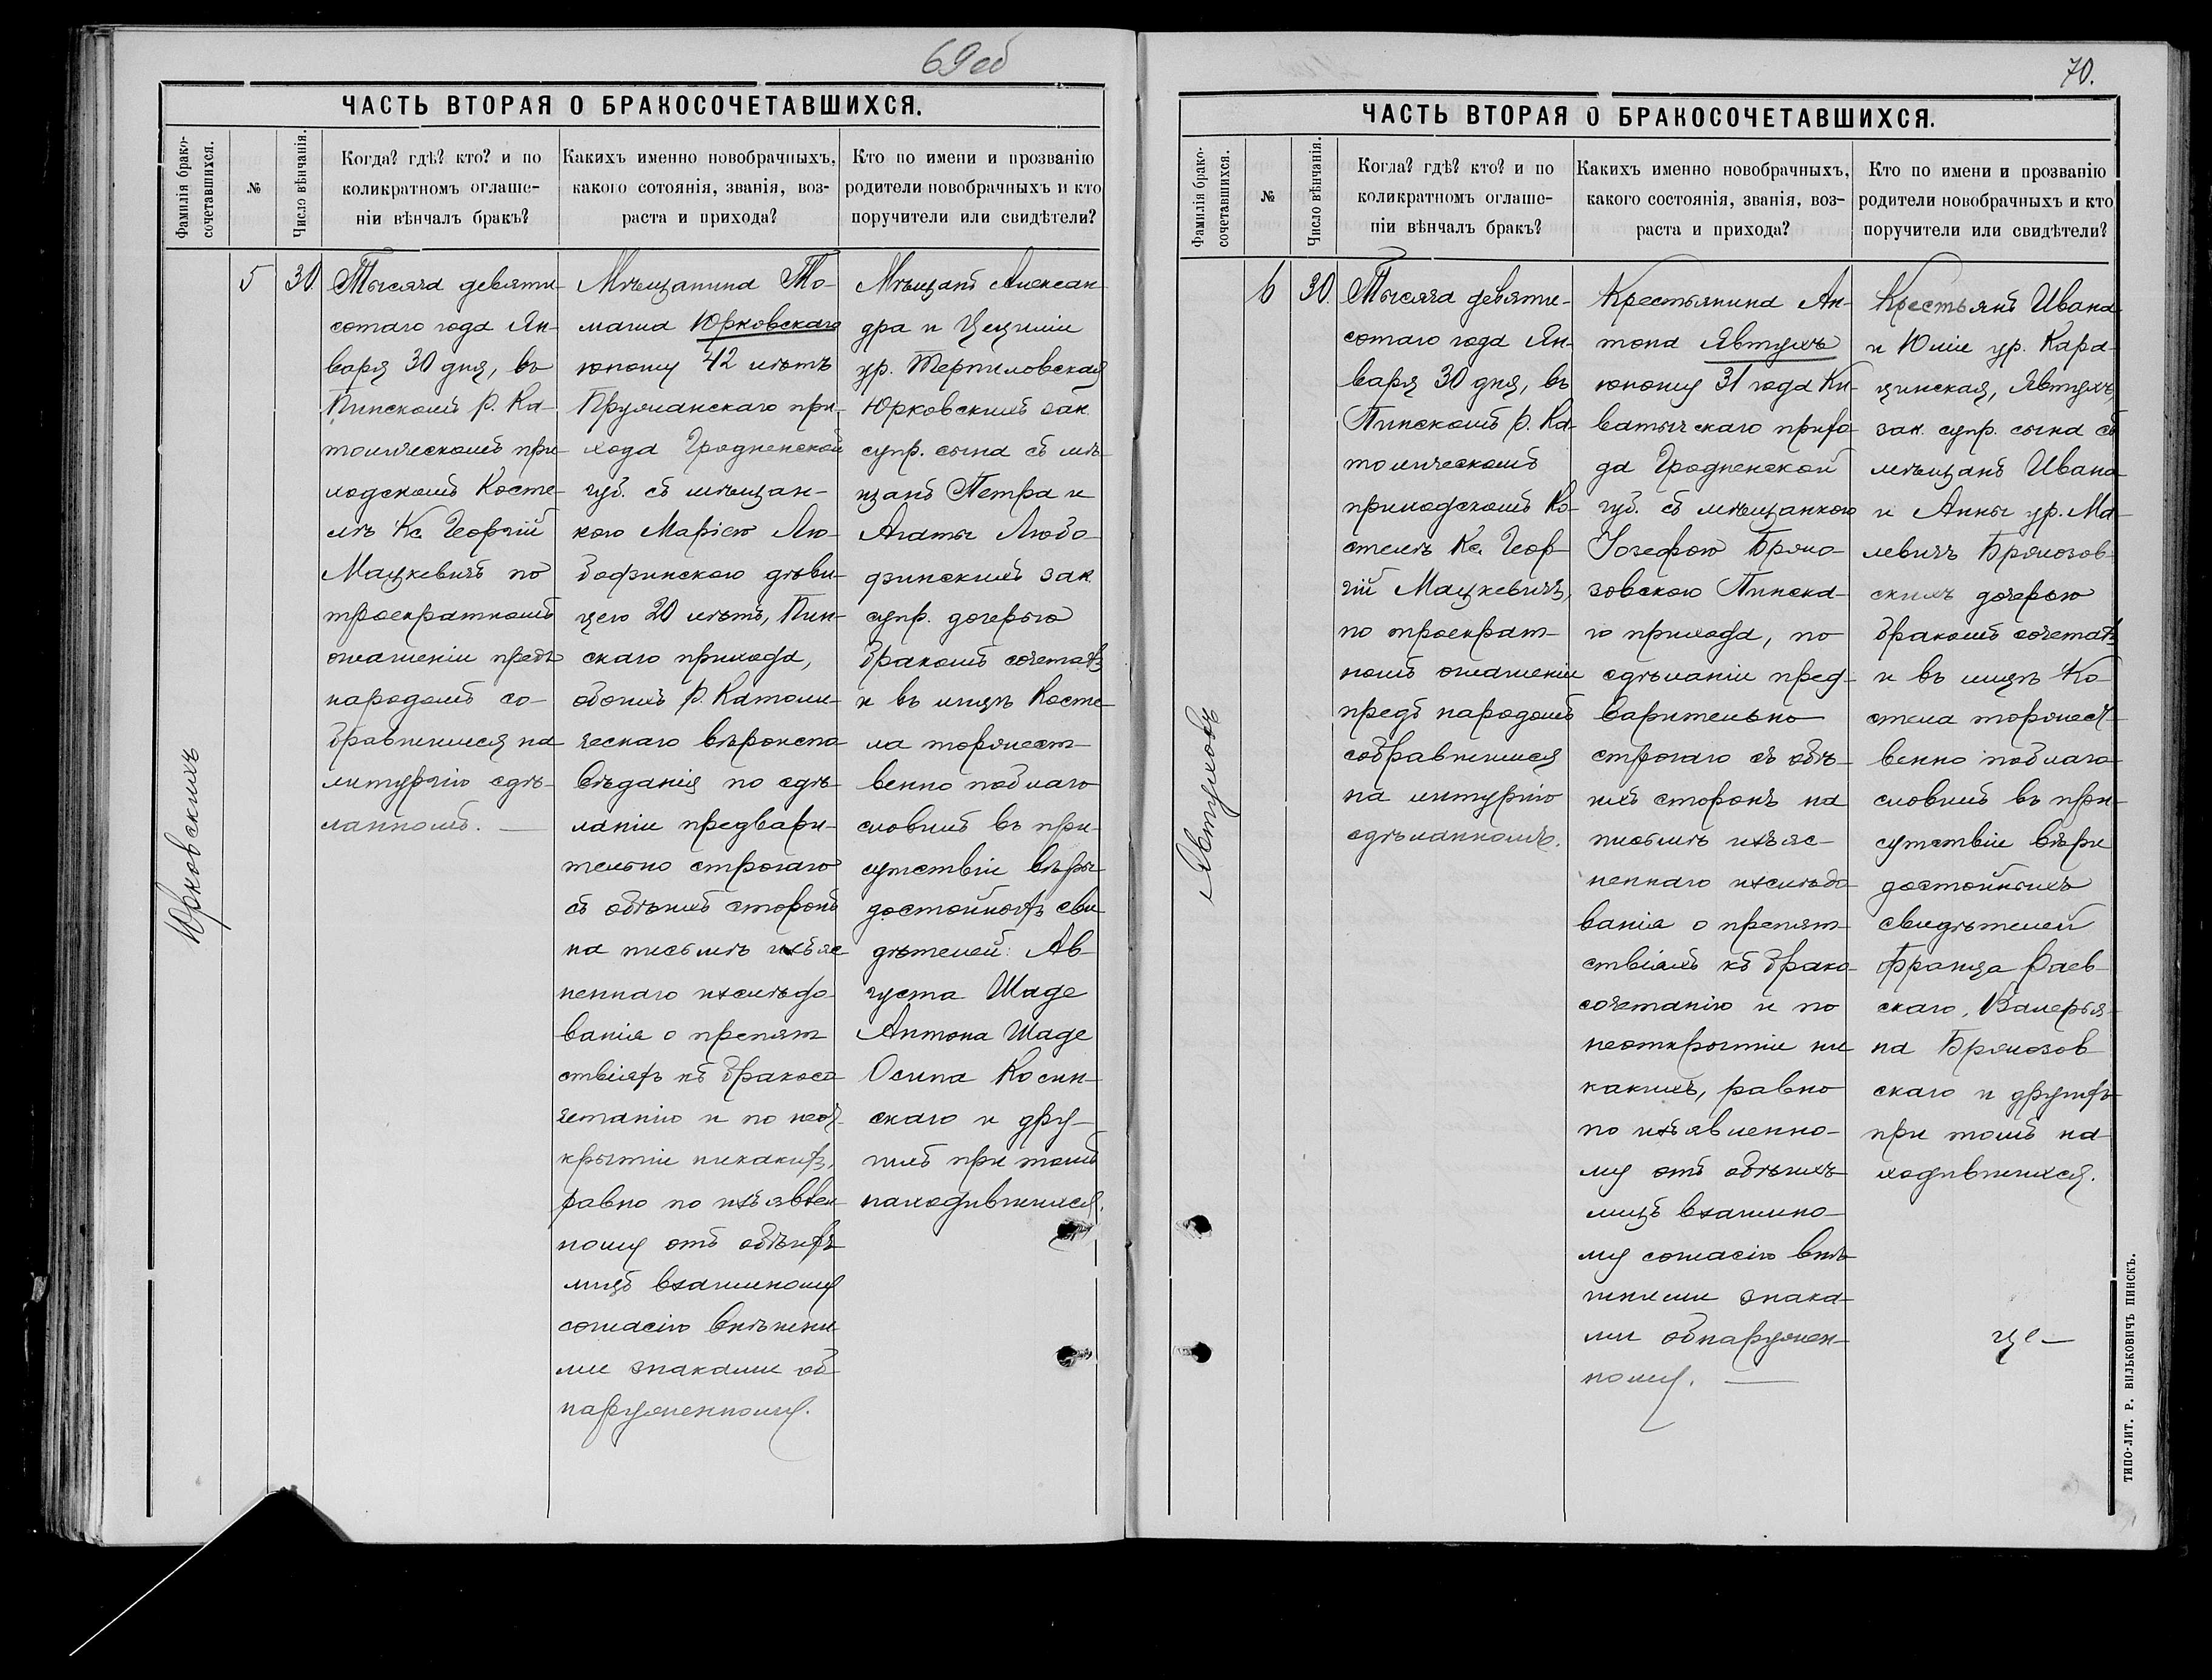 69 об
ЧАСТЬ ВТОРАЯ О БРАКОСОЧЕТАВШИХСЯ.
Фамилія брако-
сочетавшихся.
№
Число вѣнчанія.
Когда? гдѣ? кто? и по
коликратномъ оглаше-
ніи вѣнчалъ бракъ?
Какихъ именно новобрачныхъ,
какого сотоянія, званія, воз-
раста и прихода?
Кто по имени и прозванію
родители новобрачныхъ и кто
поручители или свидѣтели?
Юрковскихъ
5
30.
Тысяча девяти-
сотаго года Ян-
варя 30 дня, въ
Пинскомъ р. Ка-
толическомъ при-
ходскомъ Косте-
лѣ Кс. Георгій
Мацкевичъ по
троекратномъ
оглашеніи предъ
народомъ со-
бравшимся на
литургію сдѣ-
ланномъ. —
Мѣщанина То-
маша Юрковскаго
юношу 42 лѣтъ
Пружанскаго при-
хода Гродненской
губ. съ мѣщан-
кою Маріею Лю-
бофинскою дѣви-
цею 20 лѣтъ, Пин-
скаго прихода,
обоихъ р. Католи-
ческаго вѣроиспо-
вѣданія по сдѣ-
ланіи предвари-
тельно строгаго
съ обѣихъ сторонъ
на письмѣ изъяс-
неннаго изслѣдо-
ванія о препят-
ствіяхъ къ бракосо-
четанію и по неот-
крытіи никакихъ,
равно по изъявлен-
ному отъ обѣихъ
лицъ взаимному
согласію внѣшни-
ми знаками об-
наруженному.
Мѣщанъ Алексан-
дра и Цециліи
ур. Терпиловская
Юрковскихъ зак.
супр. сына съ мѣ-
щанъ Петра и
Агаты Любо-
финскихъ зак.
супр. дочерью
бракомъ сочеталъ
и въ лицѣ Косте-
ла торжест-
венно поблаго-
словилъ въ при-
сутствіи вѣры
достойныхъ сви-
дѣтелей: Ав-
густа Шаде
Антона Шаде
Осипа Косин-
скаго и дру-
гихъ при томъ
находившихся.
70.
ЧАСТЬ ВТОРАЯ О БРАКОСОЧЕТАВШИХСЯ.
Фамилія брако-
сочетавшихся.
№
Число вѣнчанія.
Когда? гдѣ? кто? и по
коликратномъ оглаше-
ніи вѣнчалъ бракъ?
Какихъ именно новобрачныхъ,
какого состоянія, званія, воз-
раста и прихода?
Кто по имени и прозванію
родители новобрачныхъ и кто
поручители или свидѣтели?
Явтуховъ
6
30.
Тысяча девяти-
сотаго года Ян-
варя 30 дня, въ
Пинскомъ р. Ка-
толическомъ
приходскомъ Ко-
стелѣ Кс. Геор-
гій Мацкевичъ,
по троекрат-
номъ оглашеніи
предъ народомъ
собравшимся
на литургію
сдѣланномъ.
Крестьянина Ан-
тона Явтухъ
юношу 31 года Ки-
ватычскаго прихо-
да Гродненской
губ. съ мѣщанкою
Іозефою Бржо-
зовскою Пинска-
го прихода, по
сдѣланіи пред-
варительно
строгаго съ обѣ-
ихъ сторонъ на
письмѣ изъяс-
неннаго изслѣдо-
ванія о препят-
ствіяхъ къ брако-
сочетанію и по
неоткрытіи ни
какихъ, равно
по изъявленно-
му отъ обѣихъ
лицъ взаимно-
му согласію внѣ-
шними знака-
ми обнаружен-
ному. —
Крестьянъ Ивана
и Юліи ур. Кара-
цинская, Явтухъ,
зак. супр. сына съ
мѣщанъ Ивана
и Анны ур. Ма-
левичъ Бржозов-
скихъ дочерью
бракомъ сочеталъ
и въ лицѣ Ко-
стела торжест-
венно поблаго-
словилъ въ при-
сутствіи вѣры
достойныхъ
свидѣтелей
Франца Раев-
скаго, Валерья-
на Бржозов-
скаго и другихъ
при томъ на-
ходившихся.
ТИПО-ЛИТ. Р. ВИЛЬКОВИЧЪ ПИНСКЪ.